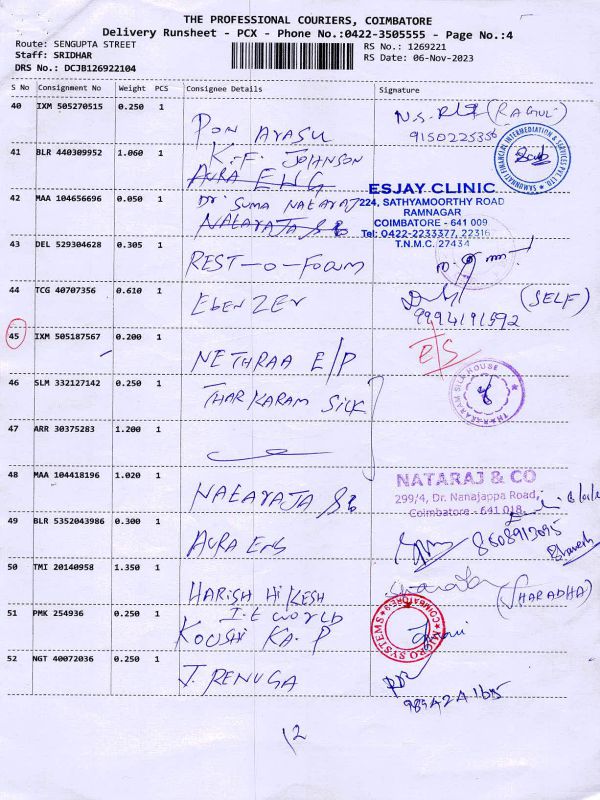 THE PROFESSIONAL COURIERS, COIMBATORE
Delivery Runsheet - PCX - Phone No.:0422-3505555 - Page No.:4
Route: SENGUPTA STREET
RS No.: 1269221
Staff: SRIDHAR
RS Date: 06-Nov-2023
DRS No.: DCJB126922104
S No Consignment No Weight PCS Consignee Details Signature
40 IXM 505270515 0.250 1
PON AYASU
N.S. (RAGUL)
9150225356
41 BLR 440309952 1.060 1
K.F. JOHNSON
AURA ENG
SAMUNNATI FINANCIAL INTERMEDIATION & SERVICES PVT. LTD
42 MAA 104656696 0.050 1
Dr. SUMA NATARAJ
NATARAJA
ESJAY CLINIC
224, SATHYAMOORTHY ROAD
RAMNAGAR
COIMBATORE - 641 009
Tel: 0422-2233377, 22316
T.N.M.C. 27434
43 DEL 529304628 0.305 1
REST-O-FOAM
44 TCG 40707356 0.610 1
EbenZEr
(SELF)
9994191592
45 IXM 505187567 0.200 1
NETHRAA E/P
E/S
46 SLM 332127142 0.250 1
THARKARAM SILK
THARAKARAM SILK HOUSE
47 ARR 30375283 1.200 1
48 MAA 104418196 1.020 1
NATARAJA
NATARAJ & CO
299/4, Dr. Nanajappa Road,
Coimbatore - 641 018
49 BLR 5352043986 0.300 1
AURA Eng
8608913095
Bhavesh
50 TMI 20140958 1.350 1
HARISH HIKESH
Sharadha
(SHARADHA)
51 PMK 254936 0.250 1
I.t WORLD
KOUSHI KA. P
MICRO SYSTEMS COIMBATORE-9
52 NGT 40072036 0.250 1
J. RENUGA
12